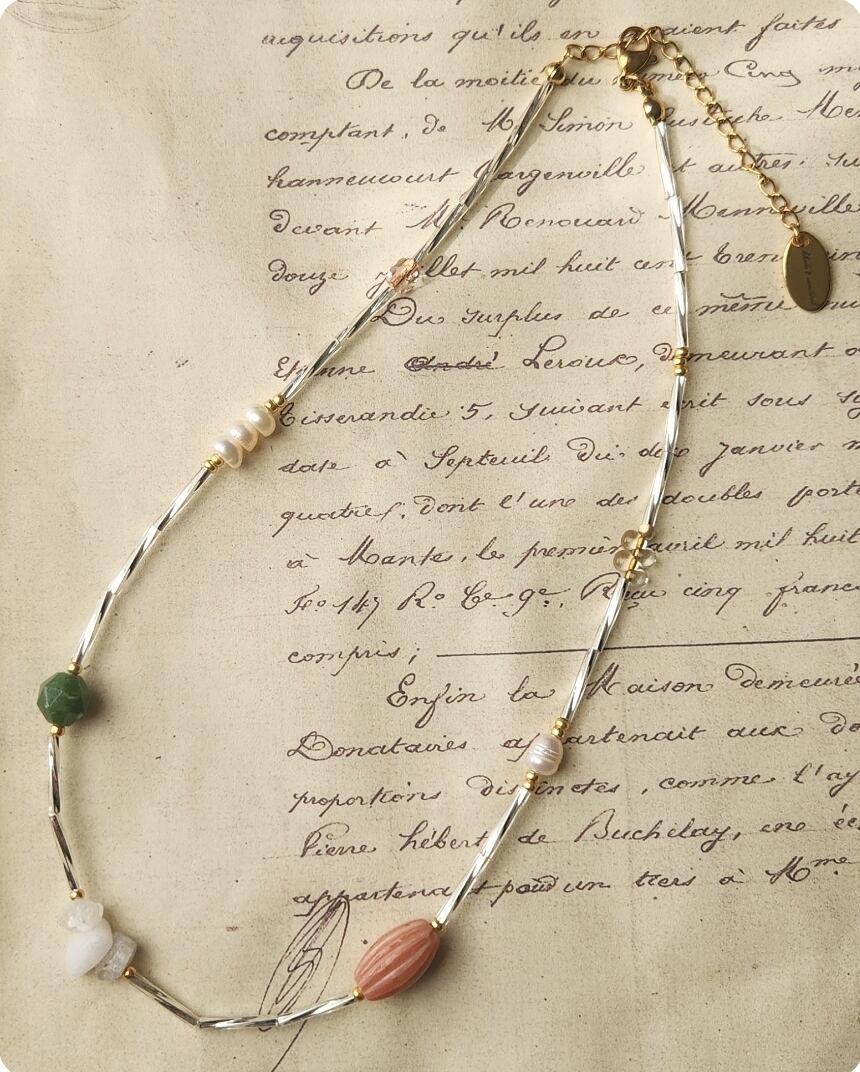 acquisitions qu'ils en avaient faites
De la moitié du numéro Cinq
comptant, de M. Simon Eustache
hanneucourt Gargenville et autres. su
devant Me Renouard Manneville
douze juillet mil huit cent tren
Du surplus de ce même nu
Etienne André Leroux, demeurant
Tisserandie 5, suivant écrit sous
date à Septeuil du dix janvier
quatre, dont l'une des doubles porte
à Mante, le premier avril mil huit
Fo 147 Ro Ce 9e, Reçu cinq franc
compris ;
Enfin la Maison demeurée
Donataires appartenait aux do
proportions distinctes, comme l'ay
Pierre hébert de Buchelay, ene
appartenant pour un tiers à Mme